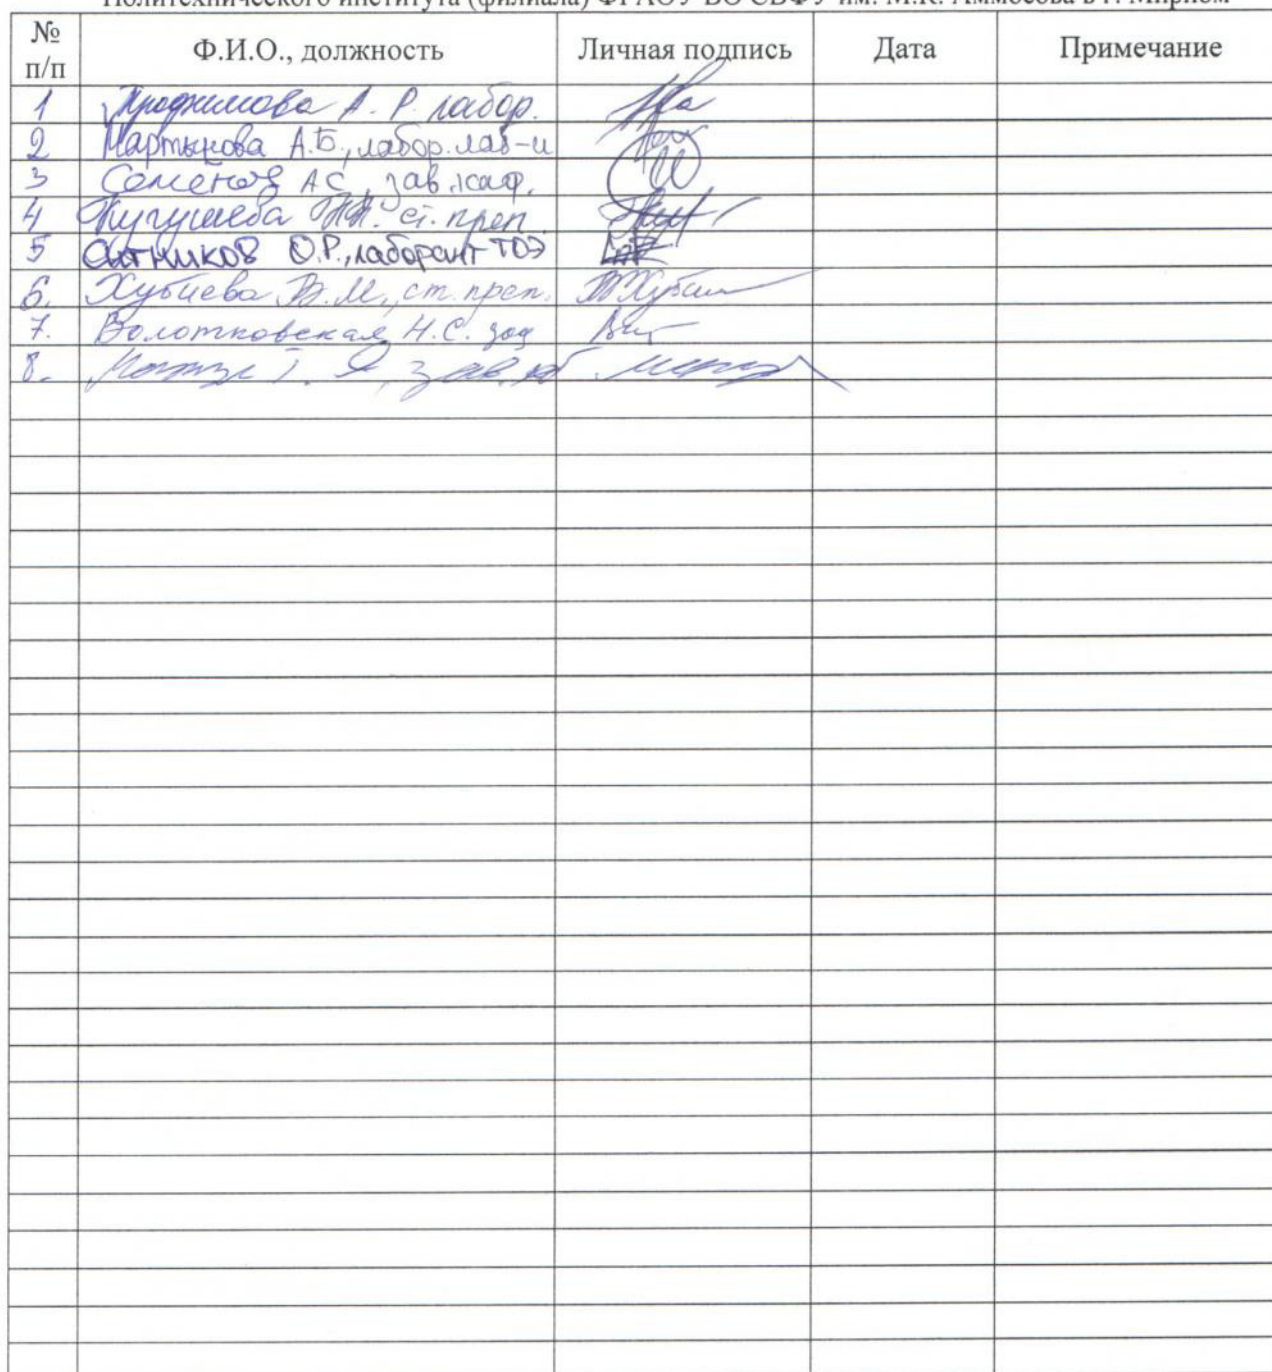 Политехнического института (филиала) ФГАОУ ВО СВФУ им. М.К. Аммосова в г. Мирном
№ п/п Ф.И.О., должность Личная подпись Дата Примечание
1 А. Р. лабор.
2 Мартынова А.Б., лабор. лаб-и
3 Семёнов А.С., зав. каф.
4 Кугушева ст. преп.
5 Ситников О.Р., лаборант ТОЭ
6. Хубиева В.М., ст. преп.
7. Волотковская Н.С. зав
8.